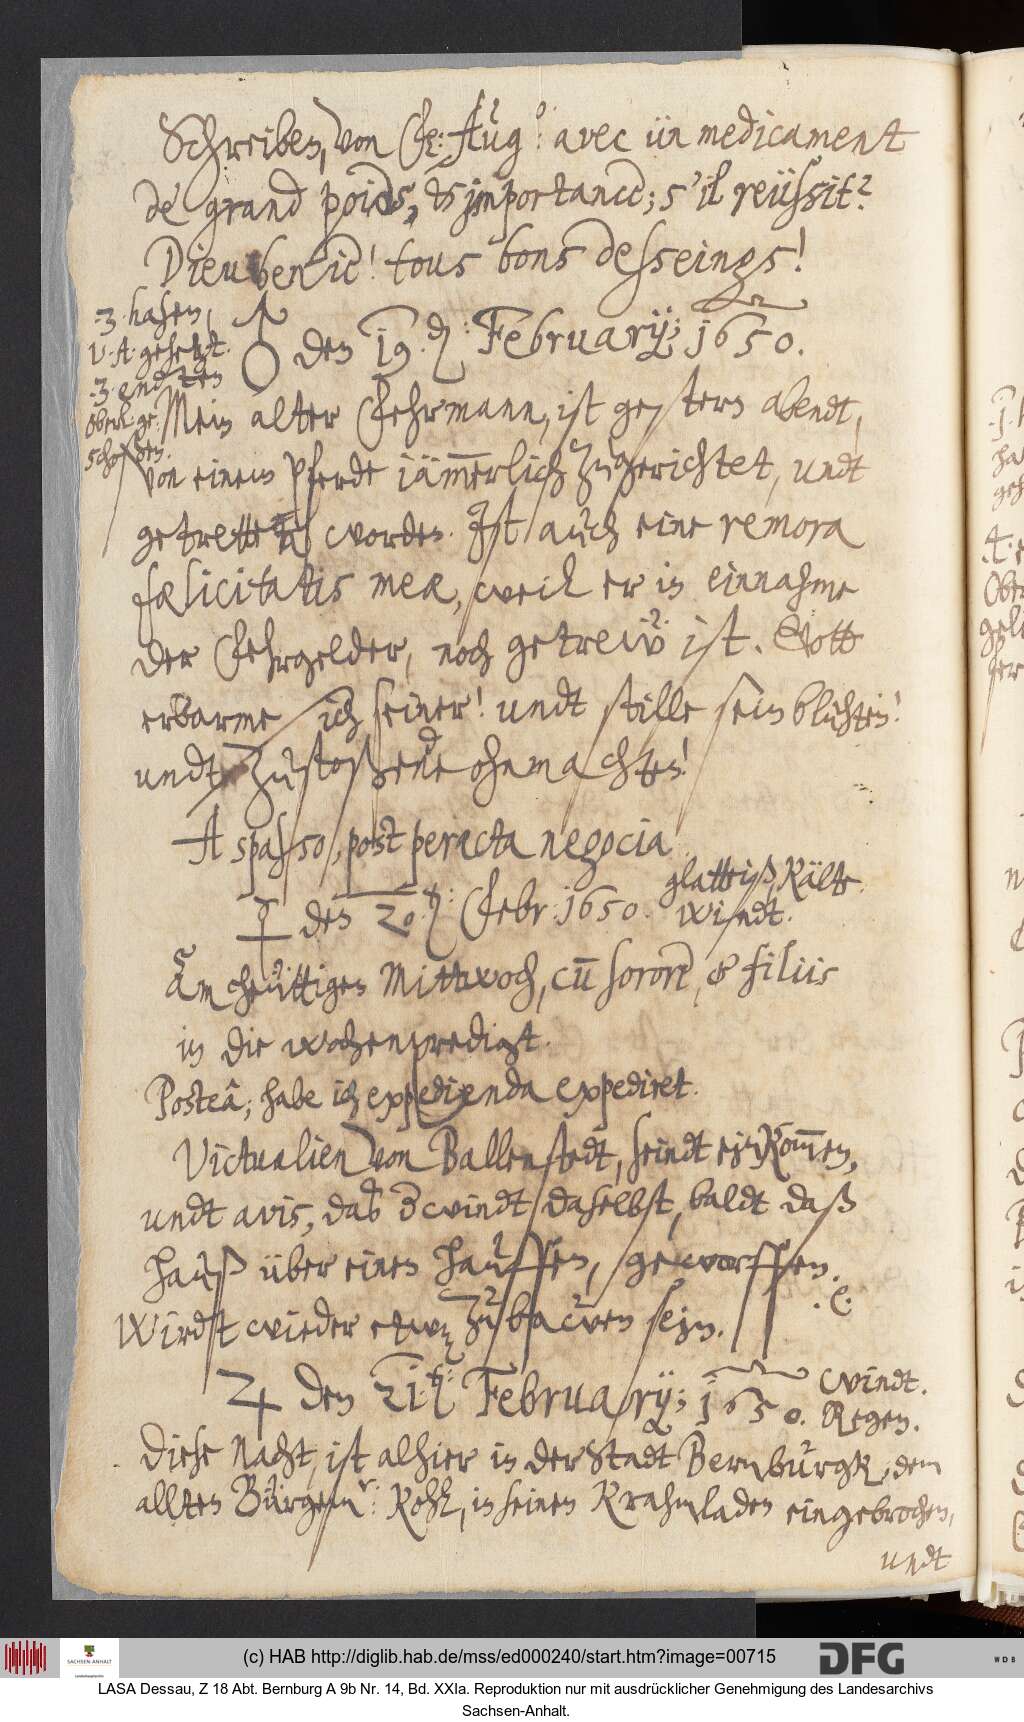 Schreiben, von F: Aug⁰: avec ün medicament
de grand poids, & importance; s'il reüssit?
Dieu benie! tous bons desseings!
♂ den 19.d: Februarÿ; 1650.
3 hasen,
V. A. gehetzt.
3 endten
Oberl: ge¬
schoßen.
Mein alter Fehrmann, ist gestern abendt,
von einem pferde iämmerlich zugerichtet, undt
getretten worden. Jst auch eine remora
fælicitatis meæ, weil er in einnahme
der Fehrgelder, noch getreẅ ist. Gott
erbarme sich seiner! undt stille sein bluhten!
undt zustoßende ohnmachten!
A spasso, post peracta negocia
☿ den 20.d: Febr: 1650. glatteiß, Kälte.
Windt.
Am heüttigen Mittwoch, cum sorore, & filiis
in die wochenpredigt.
Posteà; habe ich expedienda expediret.
Victualien von Ballenstedt, seindt ein kommen,
undt avis, daß der windt daselbst, baldt daß
hauß über einen hauffen, geworffen.
Wirdt wieder etwaß zu bawen sein. et cetera
♃ den 21.d: Februarÿ; 1650. Windt.
Regen.
Diese Nacht, ist alhier in der Stadt Bernburgk, dem
allten Bürgemr: Kohl, in seinen Krahmladen eingebrochen,
undt
(c) HAB http://diglib.hab.de/mss/ed000240/start.htm?image=00715
SACHSEN-ANHALT
DFG
WDB
LASA Dessau, Z 18 Abt. Bernburg A 9b Nr. 14, Bd. XXIa. Reproduktion nur mit ausdrücklicher Genehmigung des Landesarchivs
Sachsen-Anhalt.